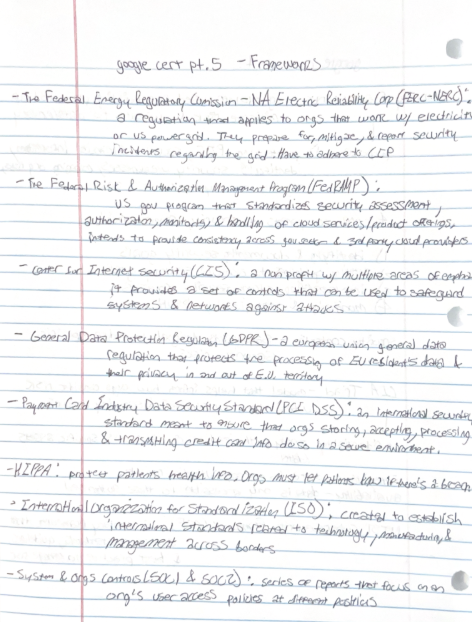 google cert pt. 5 - Frameworks
- The Federal Energy Regulatory Comission - NA Electric Reliability Corp (FERC-NERC):
a regulation that applies to orgs that work w/ electricity
or US powergrid. They prepare for, mitigate, & report security
incidents regarding the grid. Have to adhere to CIP
- The Federal Risk & Authorization Management Program (FedRAMP):
US gov program that standardizes security assessment,
authorization, monitoring & handling of cloud services/product offerings,
intends to provide consistency across gov sector & 3rd party cloud providers.
- Center for Internet Security (CIS): a non profit w/ multiple areas of
it provides a set of controls that can be used to safeguard
systems & networks against attacks
- General Data Protection Regulation (GDPR) - a european union general data
regulation that protects the processing of EU residents data &
their privacy in and out of E.U. territory
- Payment Card Industry Data Security Standard (PCI DSS): an International security
standard meant to ensure that orgs storing, accepting, processing
& transmitting credit card info do so in a secure environment.
- HIPPA: protect patients health info. Orgs must let patients know if there's a breach
- International Organization for Standardization (ISO): created to establish
international standards related to technology, manufacturing, &
management across borders
- System & Orgs Controls (SOC1 & SOC2): series of reports that focus on an
org's user access policies at different positions